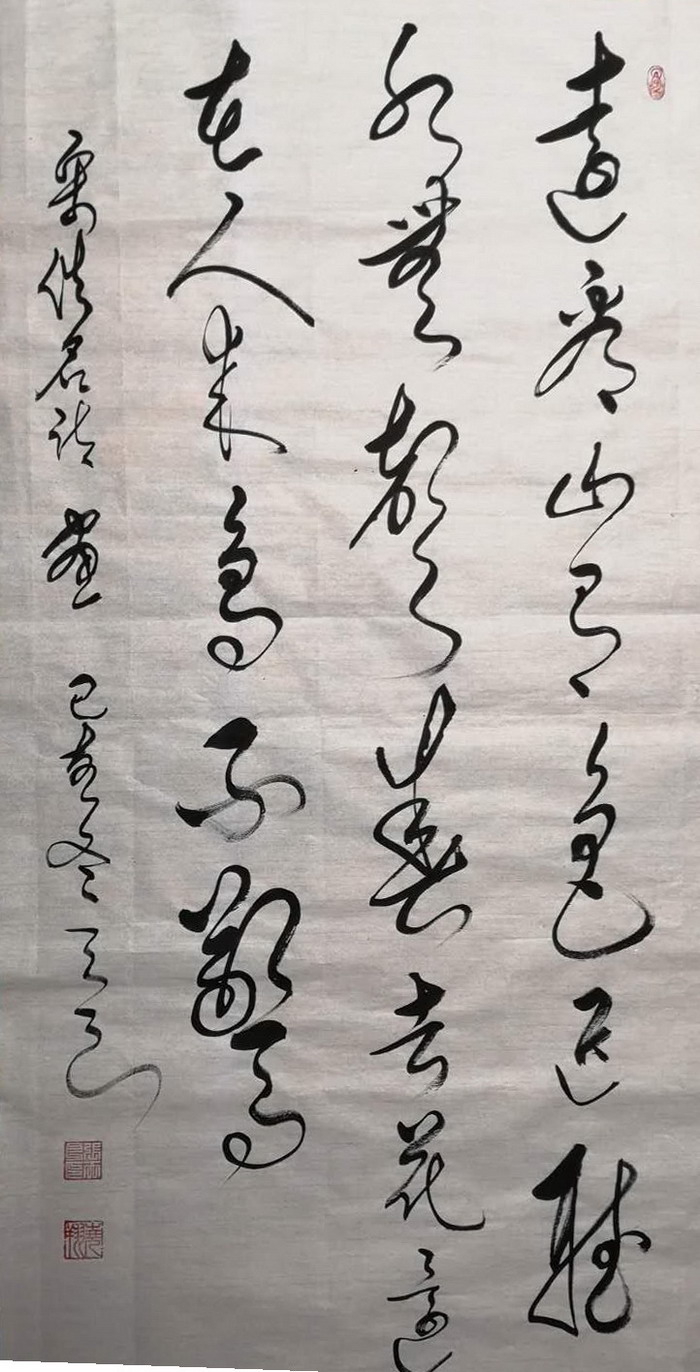 遠看山有色近聽
水無聲春去花還
在人來鳥不驚
宋佚名詩畫己亥冬